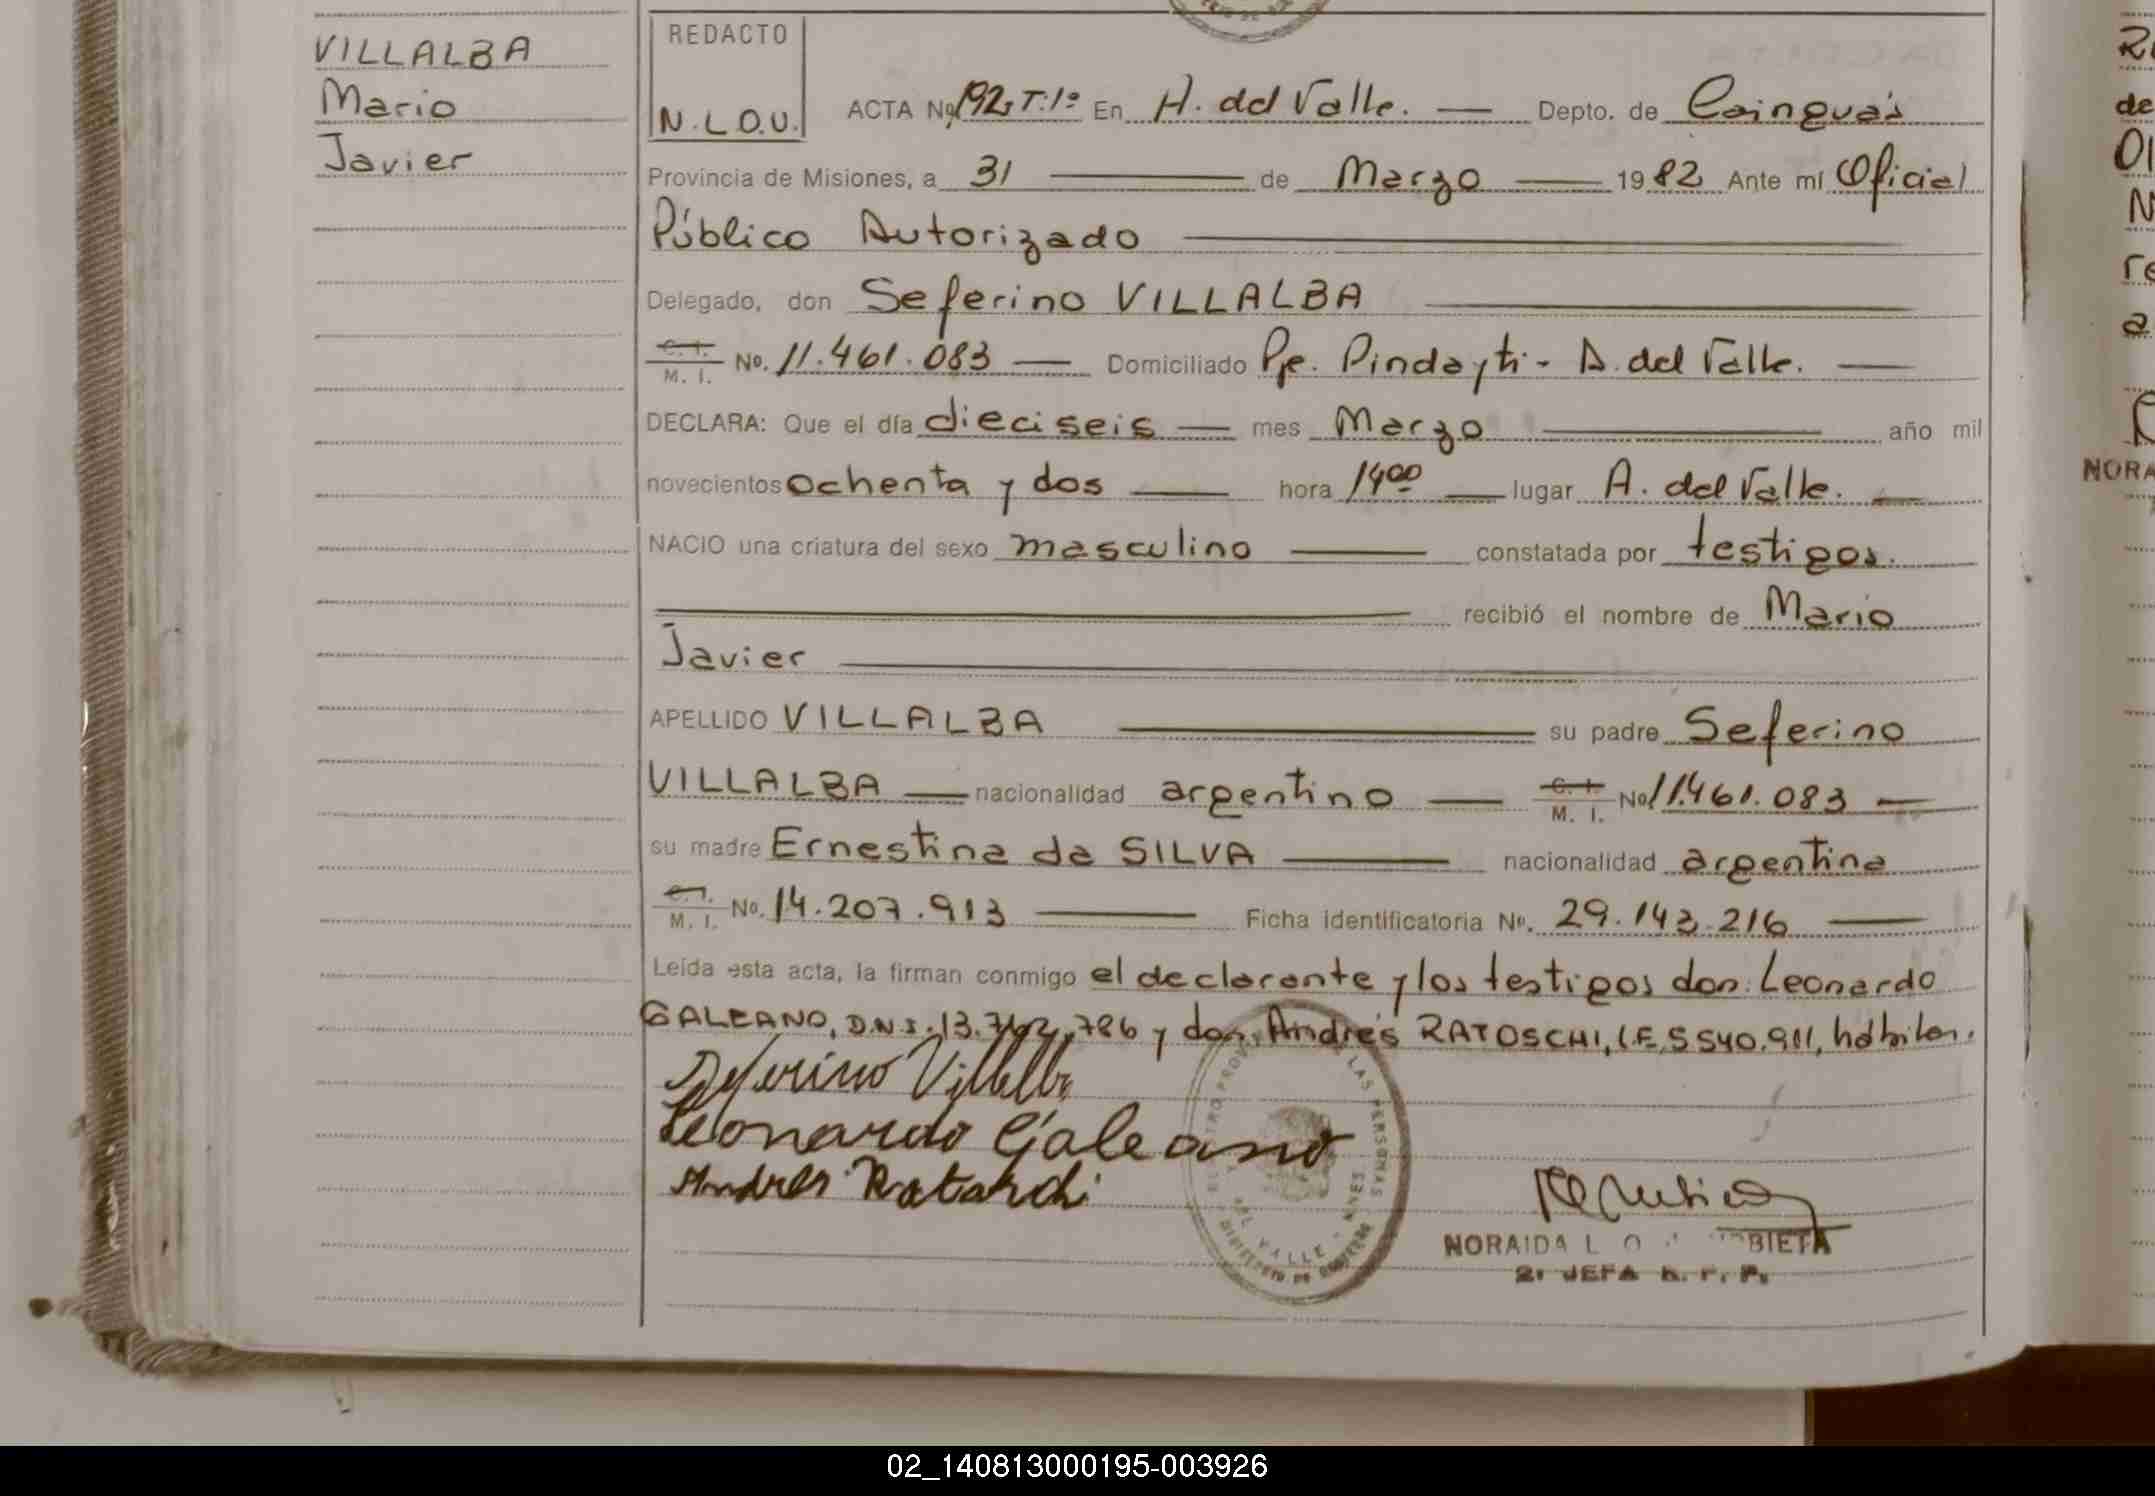 VILLALBA
Mario
Javier
REDACTO
N.L.O.U.
ACTA Nº 192, T:1º En A. del Valle. — Depto. de Cainguás
Provincia de Misiones, a 31 — de Marzo — 1982 Ante mí Oficial
Público Autorizado
Delegado, don Seferino VILLALBA
C. I. / M. I. No. 11.461.083 — Domiciliado Pje. Pindayti - A. del Valle. —
DECLARA: Que el día dieciseis — mes Marzo — año mil
novecientos ochenta y dos — hora 14⁰⁰ — lugar A. del Valle. —
NACIO una criatura del sexo masculino — constatada por testigos.
— recibió el nombre de Mario
Javier —
APELLIDO VILLALBA — su padre Seferino
VILLALBA — nacionalidad argentino — C. I. / M. I. No. 11.461.083 —
su madre Ernestina da SILVA — nacionalidad argentina
C. I. / M. I. No. 14.207.913 — Ficha identificatoria Nº. 29.143.216 —
Leída esta acta, la firman conmigo el declarante y los testigos don: Leonardo
GALEANO, D.N.I. 13.762.786 y don: Andrés RATOSCHI, L.E. 5540.911, hábiles.
Seferino Villalba
Leonardo Galeano
Andres Ratoschi
REGISTRO PROV LAS PERSONAS
DEL VALLE - MNES
MINISTERIO DE GOBIERNO
NORAIDA L. O
2ª JEFA R. P. P.
NORA
02_140813000195-003926